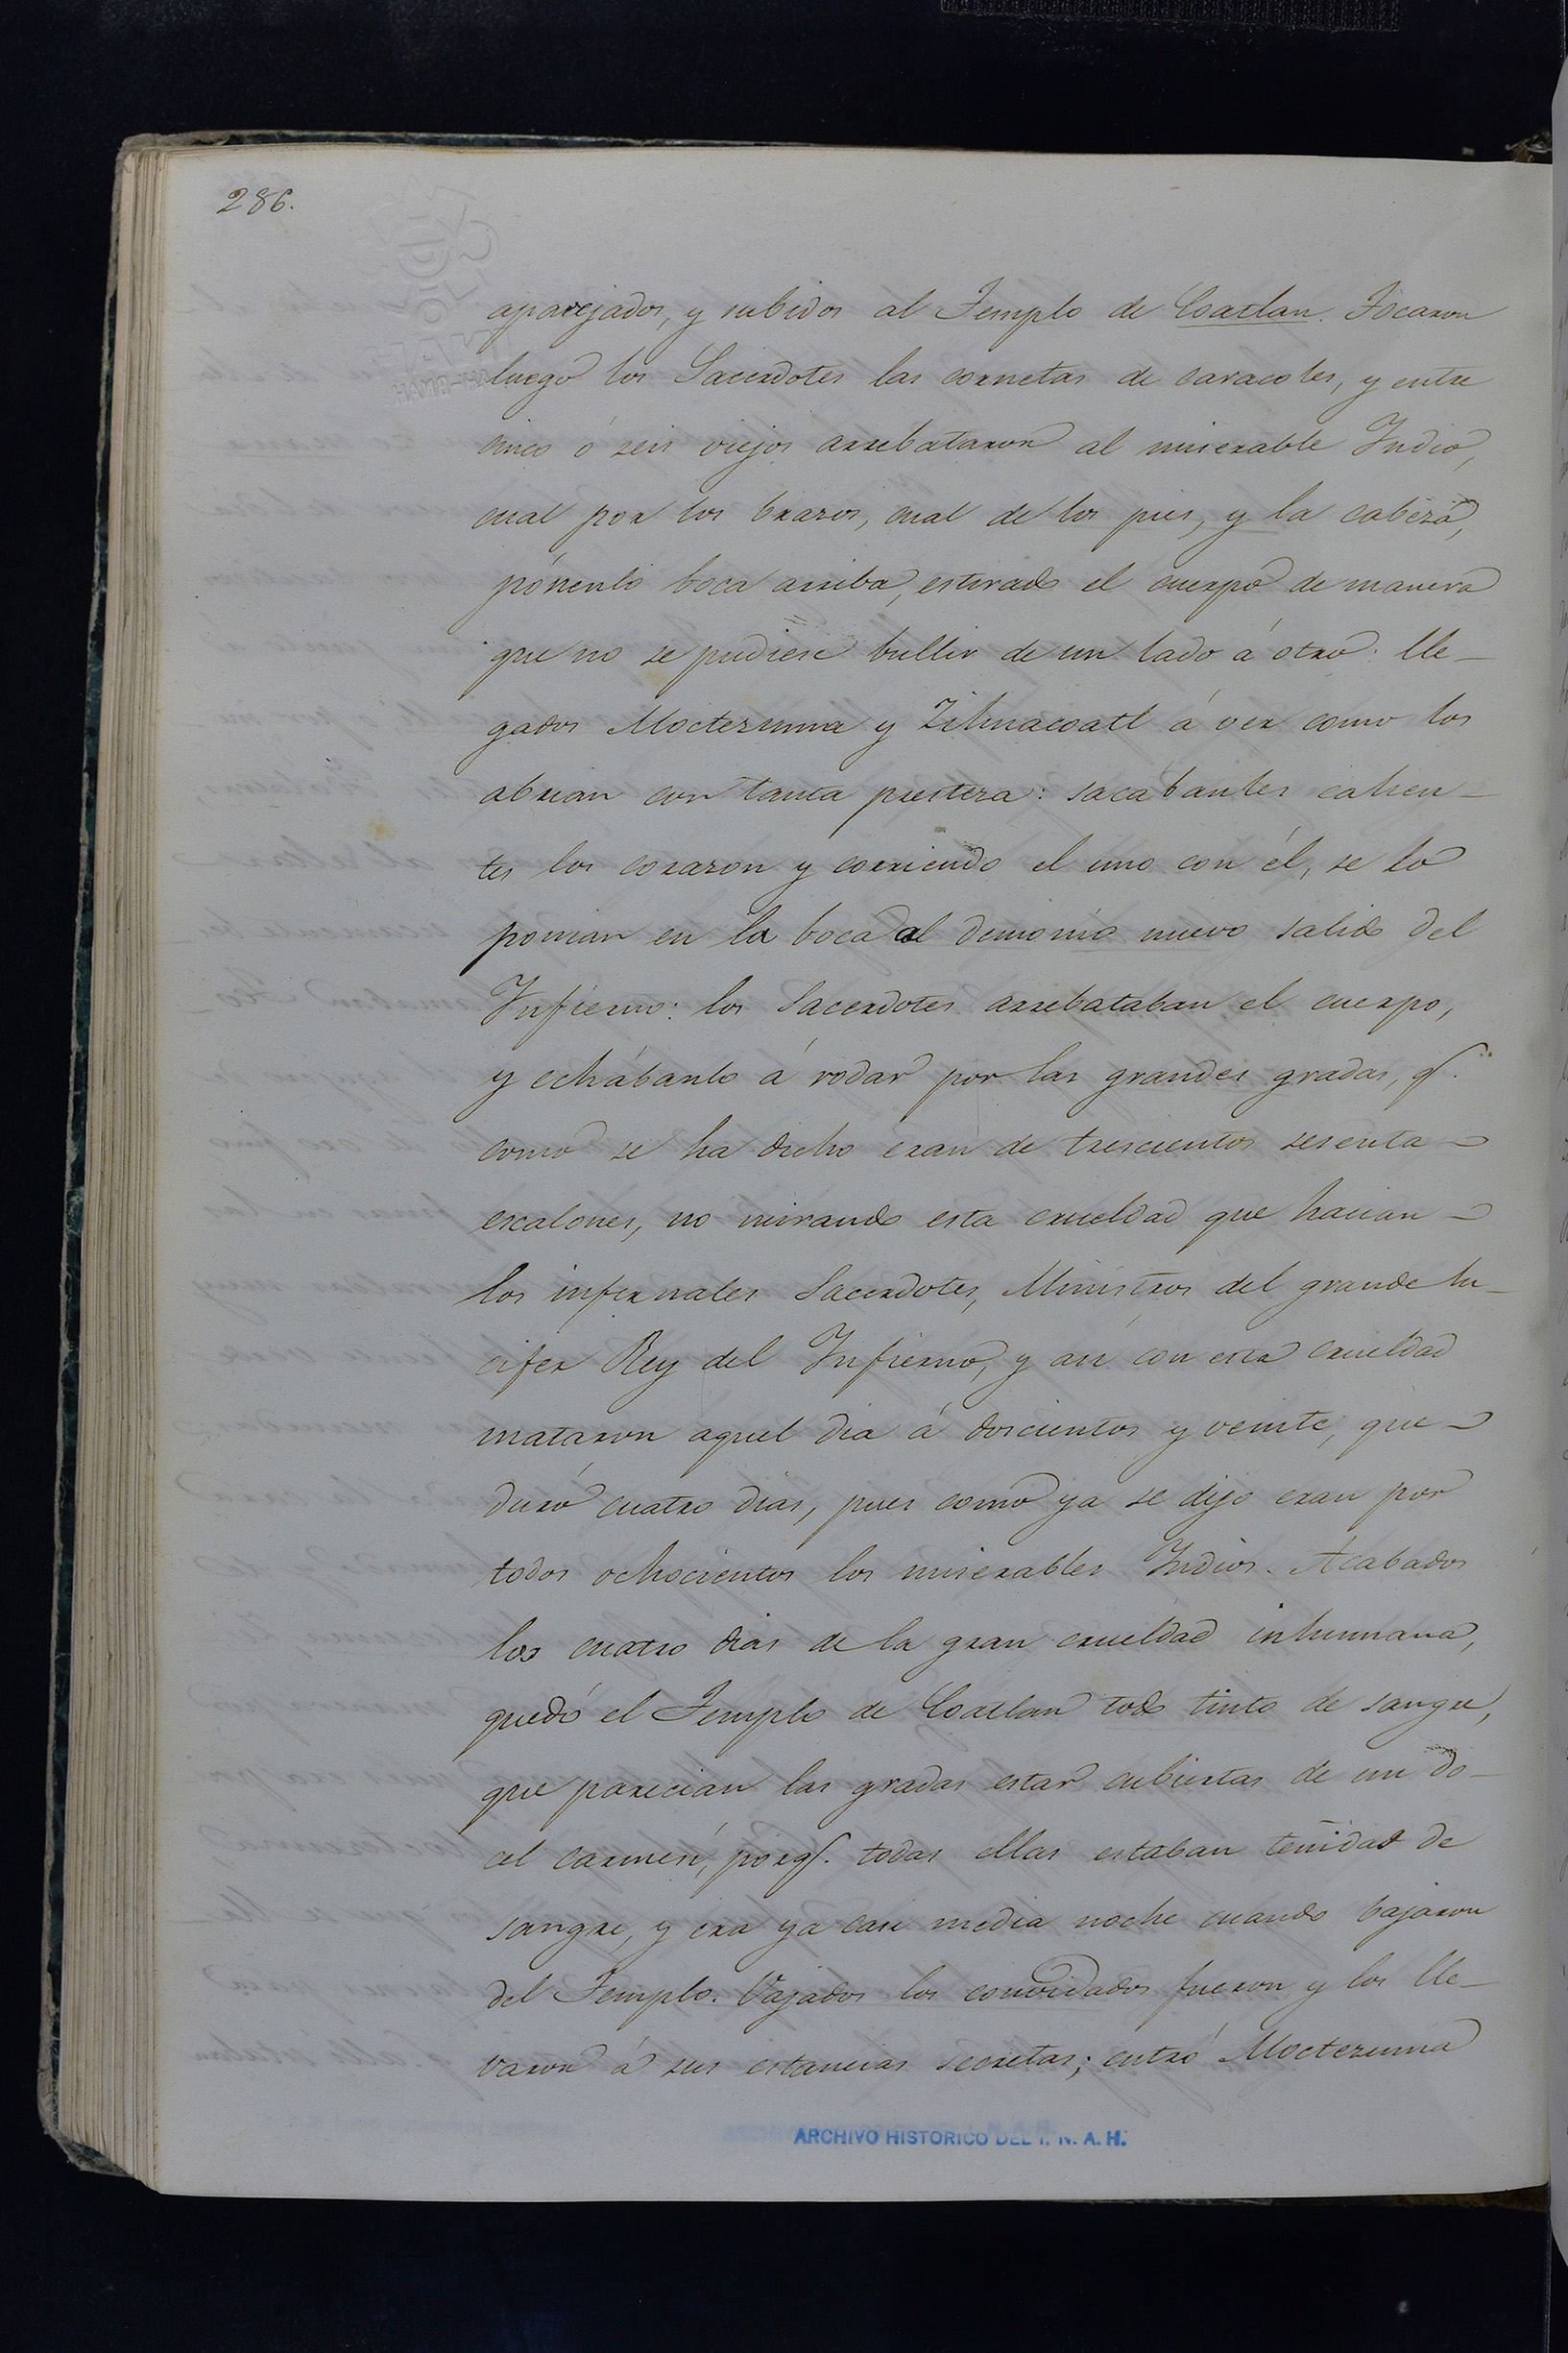 286.
aparejados, y subidos al Templo de Coatlan. Tocaron
luego los Sacerdotes las cornetas de caracoles, y entre
cinco ó seis viejos arrebataron al miserable Indio,
cual por los brazos, cual de los pies, y la cabeza,
pónenlo boca arriba, estirado el cuerpo de manera
que no se pudiese bullir de un lado á otro: lle-
gados Moctezuma y Zihuacoatl á ver como los
abrian con tanta presteza: sacabanles calien-
tes los corazon y corriendo el uno con él, se lo
ponian en la boca al demonio nuevo salido del
Infierno: los Sacerdotes arrebataban el cuerpo,
y echábanlo á rodar por las grandes gradas, q.
como se ha dicho eran de trescientos sesenta -
escalones, no mirando esta crueldad que hacian -
los infernales Sacerdotes, Ministros del grande lu-
cifer Rey del Infierno, y asi con esta crueldad
mataron aquel dia á doscientos y veinte, que -
duró cuatro dias, pues como ya se dijo eran por
todos ochocientos los miserables Indios. Acabados
los cuatro dias de la gran crueldad inhumana,
quedó el Templo de Coatlan todo tinto de sangre,
que parecian las gradas estar cubiertas de un do-
cel carmesí, porq. todas ellas estaban teñidas de
sangre, y era ya casi media noche cuando bajaron
del Templo. Vajados los convidados fueron y los lle-
varon á sus estancias secretas; entró Moctezuma
ARCHIVO HISTORICO DEL I. N. A. H.